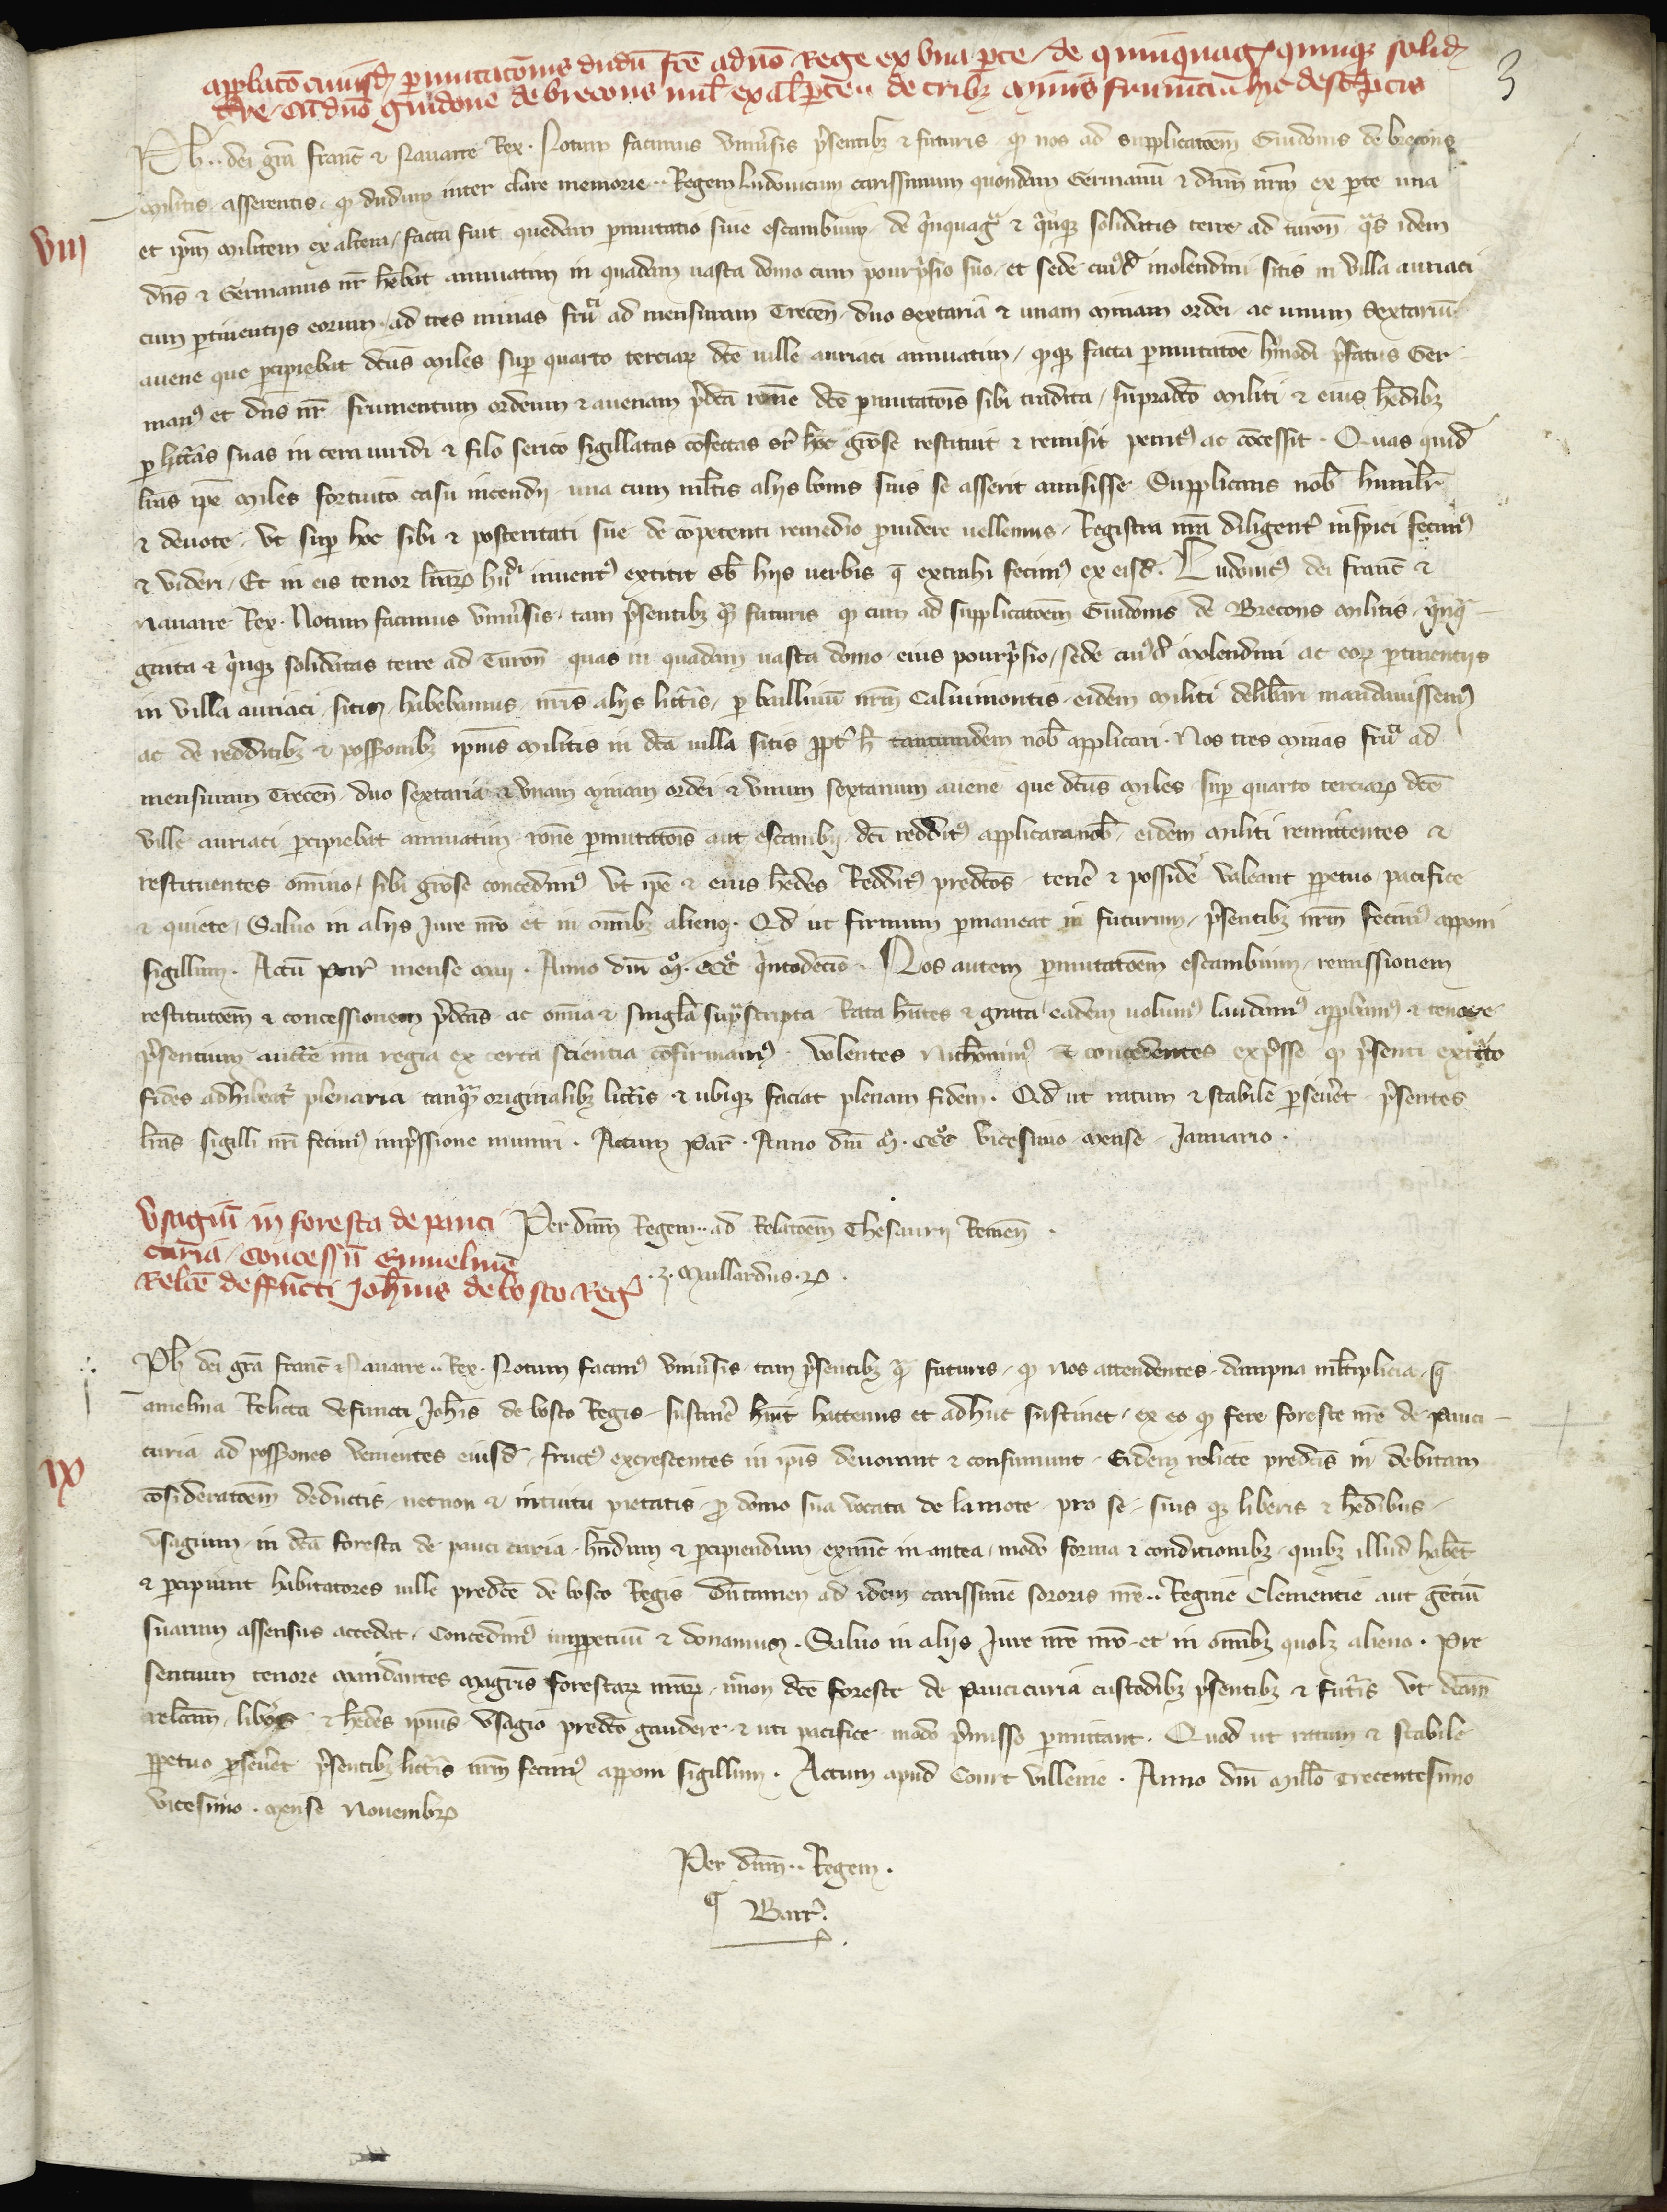 3
approbaco cuiusd permutacois dudu fce a dno Rege ex una pte de quinquag quinque solid
tre cu dno guidone de brecons mil ex al pte de tribz minis frumti hic descriptis
Ph dei gra franc & Nauarre Rex. Notum facimus uniusis psentibz & futuris q nos ad supplicatoem Guidonis de brecons
militis asserentis q dudum inter clare memorie Regem Ludouicum carissimum quondam Germanu & dnm nrm ex pte una
viij
et ipm militem ex altera facta fuit quedam pmutatio siue escambium de qinquagta & qinque solidatis terre ad turon qas idem
dns & Germanus nr hebat annuatim in quadam uasta domo cum pourpsio suo et sede cuiusd molendini sitis in villa auriaci
cum ptinentiis eorum ad tres minas frui ad mensuram Trecen duo sextaria & unam minam ordei ac unum sextariu
auene que pcipiebat dcus miles sup quarto terciar dce uille auriaci annuatim qque facta pmutatoe hmodi pfatus Ger
manus et dns nr frumentum ordeum & auenam pdca rone dce pmutatois sibi tradita supradco militi & eius hedibz
p littas suas in cera uiridi & filo serico sigillatas cofectas sr hoc grose restituit & remisit penitus ac cocessit. Quas quid
lras ipe miles fortuito casu incendii una cum mltis aliis bonis suis se asserit amisisse Supplicans nob humilr
& deuote ut sup hoc sibi & posteritati sue de competenti remedio prouidere uellemus Registra nra diligent inspici fecimus
& videri Et in eis tenor lrar hui inuentus extitit sb hiis uerbis q extrahi fecimus ex eisd. Ludouicus dei franc &
nauarre Rex. Notum facimus uniusis tam psentibz qam futuris q cum ad supplicatoem Guidonis de Brecons militis qinqa
ginta & qinque solidatas terre ad Turon quas in quadam uasta domo eius pourpsio sede cuiusd molendini ac eor ptinentiis
in villa auriaci sitis habebamus nris aliis littis p balliuu nrm Caluimontis eidem militi delibari mandauissemus
ac de redditibz & possionibz ipius militis in dca uilla sitis ppt h tantumdem nob applicari. Nos tres minas frui ad
mensuram Trecen duo sextaria & unam minam ordei & unum sextarium auene que dcus miles sup quarto terciar dce
ville auriaci pcipiebat annuatim rone pmutatois aut escambii dci redditus applicata nob eidem militi remittentes &
restituentes omnino sibi grose concedimus ut ipe & eius hedes Redditus predcos tenere & possidere valeant ppetuo pacifice
& quiete Saluo in aliis iure nro et in omibz alieno. Qd ut firmum pmaneat in futurum psentibz nrm fecimus apponi
sigillum. Actu par mense maii. Anno dni m. ccc qintodecio. Nos autem pmutatoem escambium remissionem
restitutoem & concessionem pdcas ac omia & singla supascripta Rata hntes & grata eadem uolumus laudamus approbamus & tenore
psentium auctte nra regia ex certa scientia cofirmamus. Volentes nichominus & concedentes expsse q psenti extracto
fides adhibeatur plenaria tanqam originalibz littis & ubique faciat plenam fidem. Qd ut ratum & stabile pseuet psentes
lras sigilli nri fecimus impssione muniri. Actum par. Anno dni m. ccc vicesimo mense Januario.
Usagiu in foresta de pauci
curia concessu Emmeline
Relce deffuncti Johnis de bosco Reg
Per dnm Regem ad Relatoem Thesaurii Remen.
.J. Maillardus.
Ph dei gra franc & Nauarre Rex. Notum facimus uniusis tam psentibz q futuris q nos attendentes dampna mltiplicia q
amelina Relicta defuncti Johis de bosco Regis sustinere huit hactenus et adhuc sustinet ex eo q fere foreste nre de pauci
ix
curia ad possiones venientes eiusd fructus excrescentes in ipis deuorant & consumunt Eidem relicte predcis in debitam
cosideratoem deductis necnon & intuitu pietatis p domo sua vocata de lamote pro se suis que liberis & hedibus
usagium in dca foresta de pauci curia hndum & pcipiendum exnunc in antea modo forma & conditionibz quibz illud habet
& pcipiunt habitatores uille predce de bosco Regis dutamen ad idem carissime sororis nre Regine Clementie aut gentiu
suarum assensus accedat concedimus imppetuu & donamus. Saluo in aliis iure nro et in omibz quolz alieno. Pre
sentium tenore mandantes magris forestar nrar necnon dce foreste de paucicuria custodibz psentibz & futis ut dcam
relctam liberos & hedes ipius usagio predco gaudere & uti pacifice modo pmisso pmittant. Quod ut ratum & stabile
ppetuo pseuet psentibz littis nrm fecimus apponi sigillum. Actum apud Court villerie. Anno dni millo Trecentesimo
vicesimo. mense Nouembr
Per dnm Regem.
Barr.